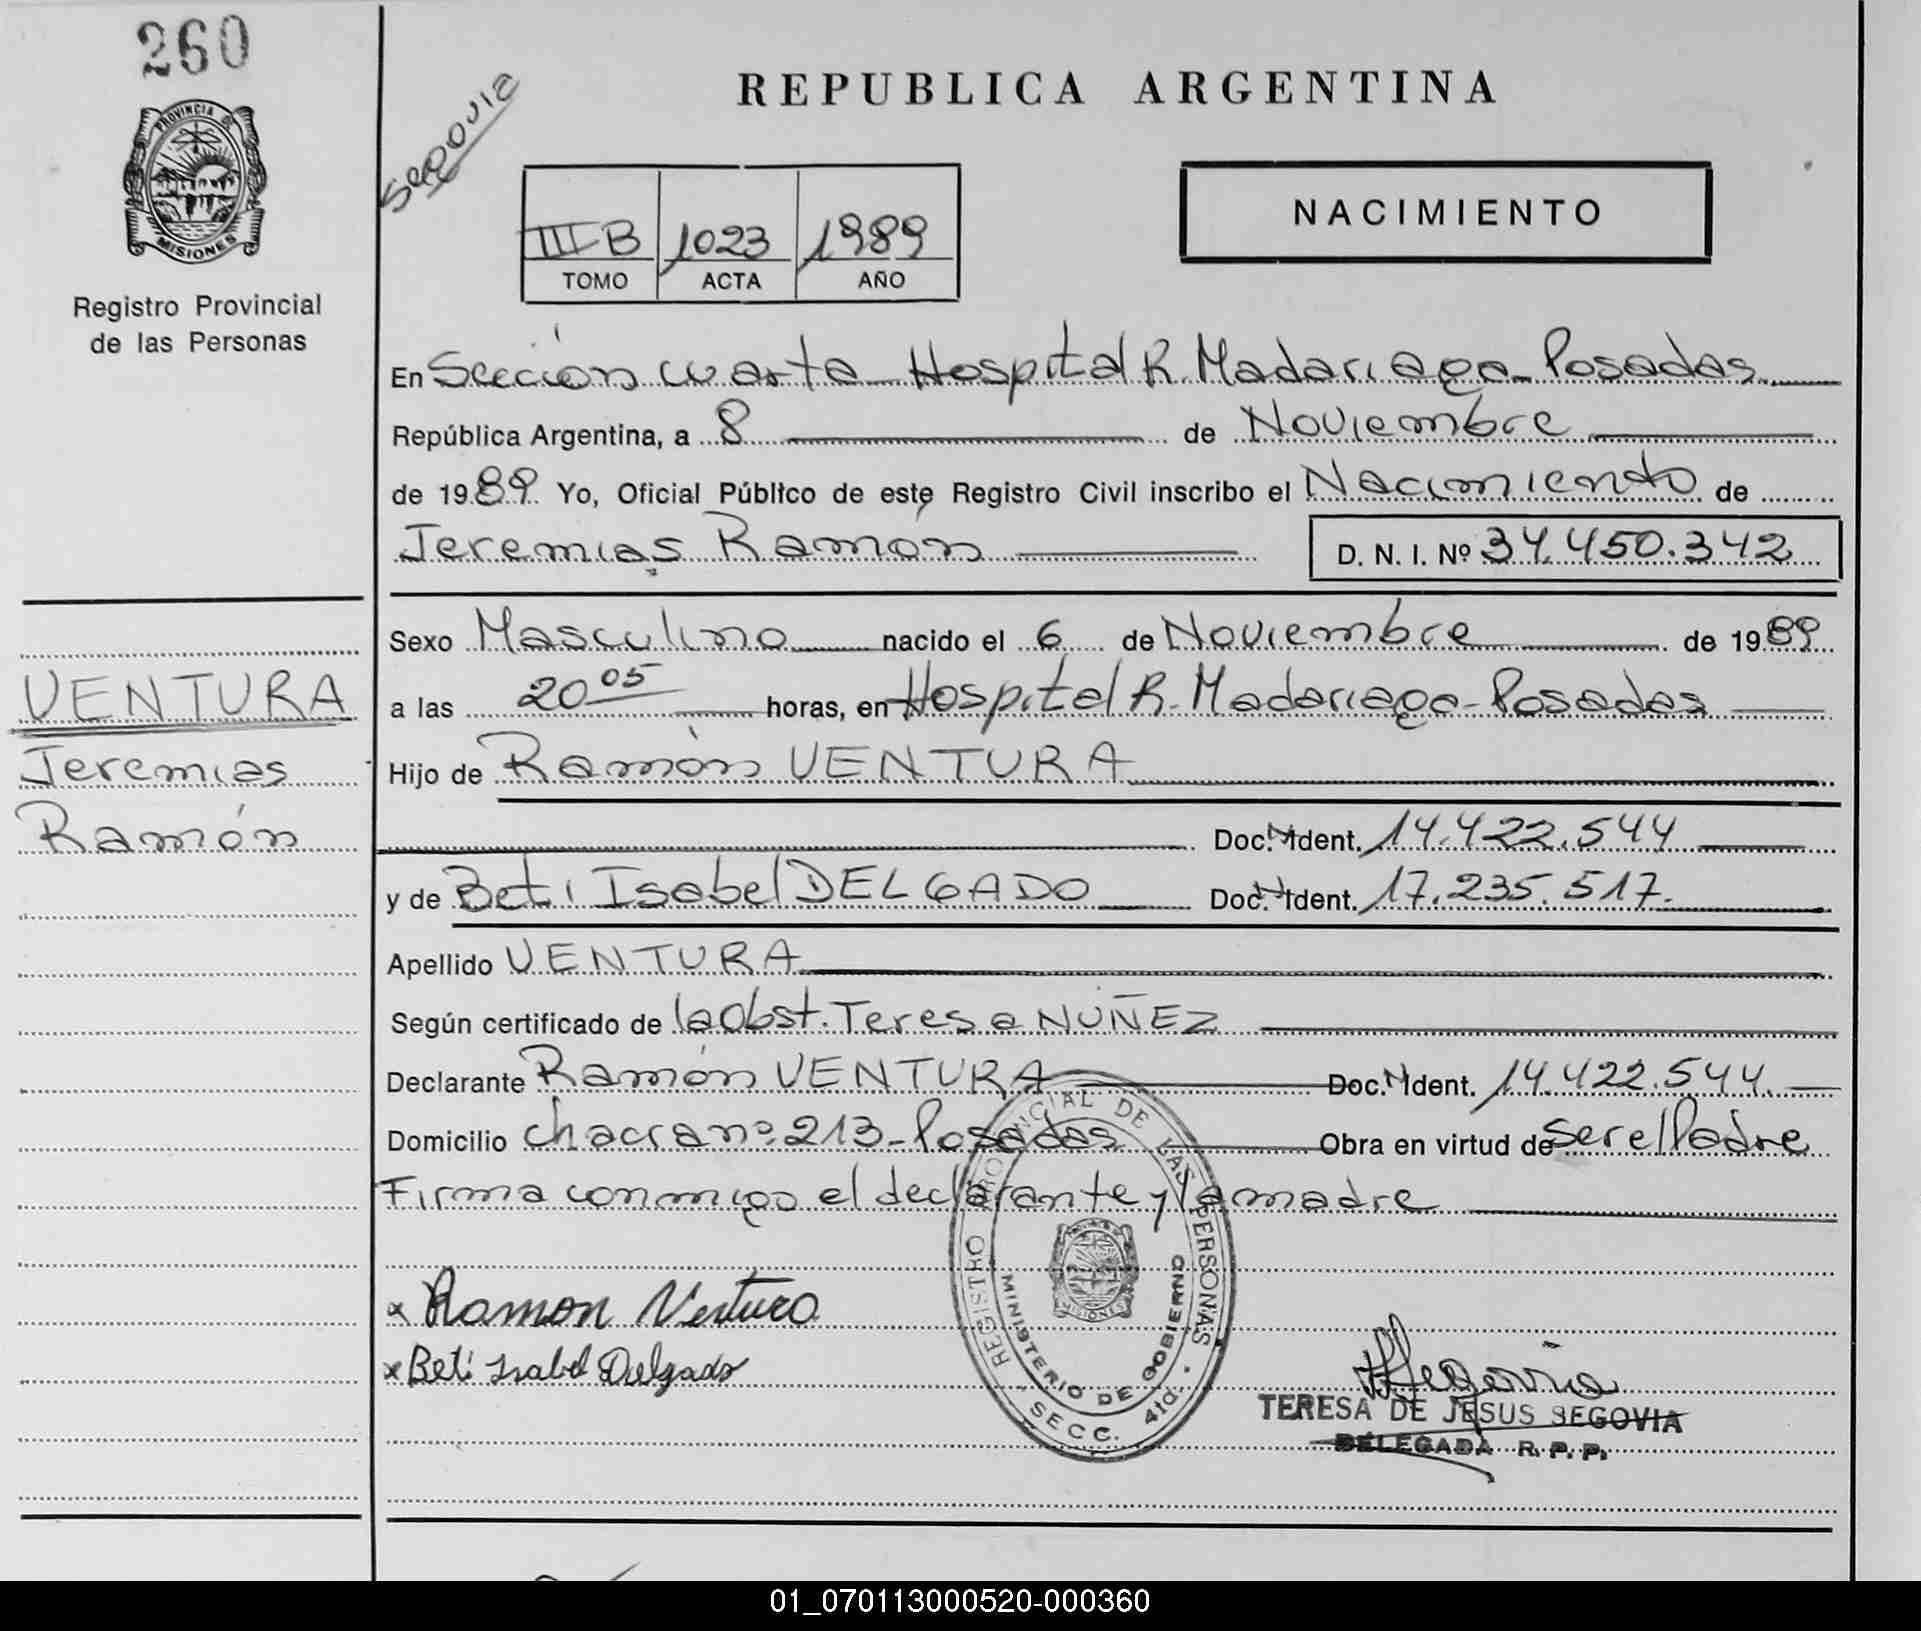 260
PROVINCIA DE
MISIONES
Registro Provincial
de las Personas
VENTURA
Jeremias
Ramón
Segovia
REPUBLICA ARGENTINA
III B 1023 1989
TOMO ACTA AÑO
NACIMIENTO
En Sección cuarta Hospital R. Madariaga - Posadas
República Argentina, a 8 de Noviembre
de 1989 Yo, Oficial Público de este Registro Civil inscribo el Nacimiento de
Jeremias Ramón D. N. I. Nº 34.450.342
Sexo Masculino nacido el 6 de Noviembre de 1989
a las 20 05 horas, en Hospital R. Madariaga - Posadas
Hijo de Ramón VENTURA
Doc. N Ident. 14.422.544
y de Beti Isabel DELGADO Doc. N Ident. 17.235.517.
Apellido VENTURA
Según certificado de la Obst. Teresa NUÑEZ
Declarante Ramón VENTURA Doc. N Ident. 14.422.544.
Domicilio chacra nº 213 - Posadas Obra en virtud de ser el Padre
Firma conmigo el declarante y la madre
x Ramon Ventura
x Beti Isabel Delgado
REGISTRO PROVINCIAL DE LAS PERSONAS
MINISTERIO DE GOBIERNO
MISIONES
SECC. 4ta.
Segovia
TERESA DE JESUS SEGOVIA
DELEGADA R. P. P.
01_070113000520-000360